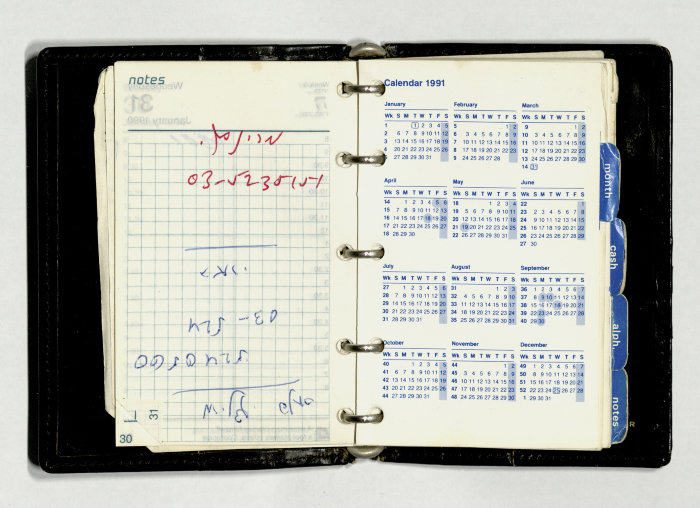 notes
03-5235151
03-524
5240560
30
31
Calendar 1991
January February March
Wk S M T W T F S Wk S M T W T F S Wk S M T W T F S
1 1 2 3 4 5 5 1 2 9 1 2
2 6 7 8 9 10 11 12 6 3 4 5 6 7 8 9 10 3 4 5 6 7 8 9
3 13 14 15 16 17 18 19 7 10 11 12 13 14 15 16 11 10 11 12 13 14 15 16
4 20 21 22 23 24 25 26 8 17 18 19 20 21 22 23 12 17 18 19 20 21 22 23
27 28 29 30 31 9 24 25 26 27 28 13 24 25 26 27 28 29 30
14 31
April May June
Wk S M T W T F S Wk S M T W T F S Wk S M T W T F S
14 1 2 3 4 5 6 18 1 2 3 4 22 1
15 7 8 9 10 11 12 13 19 5 6 7 8 9 10 11 23 2 3 4 5 6 7 8
16 14 15 16 17 18 19 20 20 12 13 14 15 16 17 18 24 9 10 11 12 13 14 15
17 21 22 23 24 25 26 27 21 19 20 21 22 23 24 25 25 16 17 18 19 20 21 22
18 28 29 30 22 26 27 28 29 30 31 26 23 24 25 26 27 28 29
27 30
July August September
Wk S M T W T F S Wk S M T W T F S Wk S M T W T F S
27 1 2 3 4 5 6 31 1 2 3 36 1 2 3 4 5 6 7
28 7 8 9 10 11 12 13 32 4 5 6 7 8 9 10 37 8 9 10 11 12 13 14
29 14 15 16 17 18 19 20 33 11 12 13 14 15 16 17 38 15 16 17 18 19 20 21
30 21 22 23 24 25 26 27 34 18 19 20 21 22 23 24 39 22 23 24 25 26 27 28
31 28 29 30 31 35 25 26 27 28 29 30 31 40 29 30
October November December
Wk S M T W T F S Wk S M T W T F S Wk S M T W T F S
40 1 2 3 4 5 44 1 2 49 1 2 3 4 5 6 7
41 6 7 8 9 10 11 12 45 3 4 5 6 7 8 9 50 8 9 10 11 12 13 14
42 13 14 15 16 17 18 19 46 10 11 12 13 14 15 16 51 15 16 17 18 19 20 21
43 20 21 22 23 24 25 26 47 17 18 19 20 21 22 23 52 22 23 24 25 26 27 28
44 27 28 29 30 31 48 24 25 26 27 28 29 30 1 29 30 31
month
cash
alph
notes
R